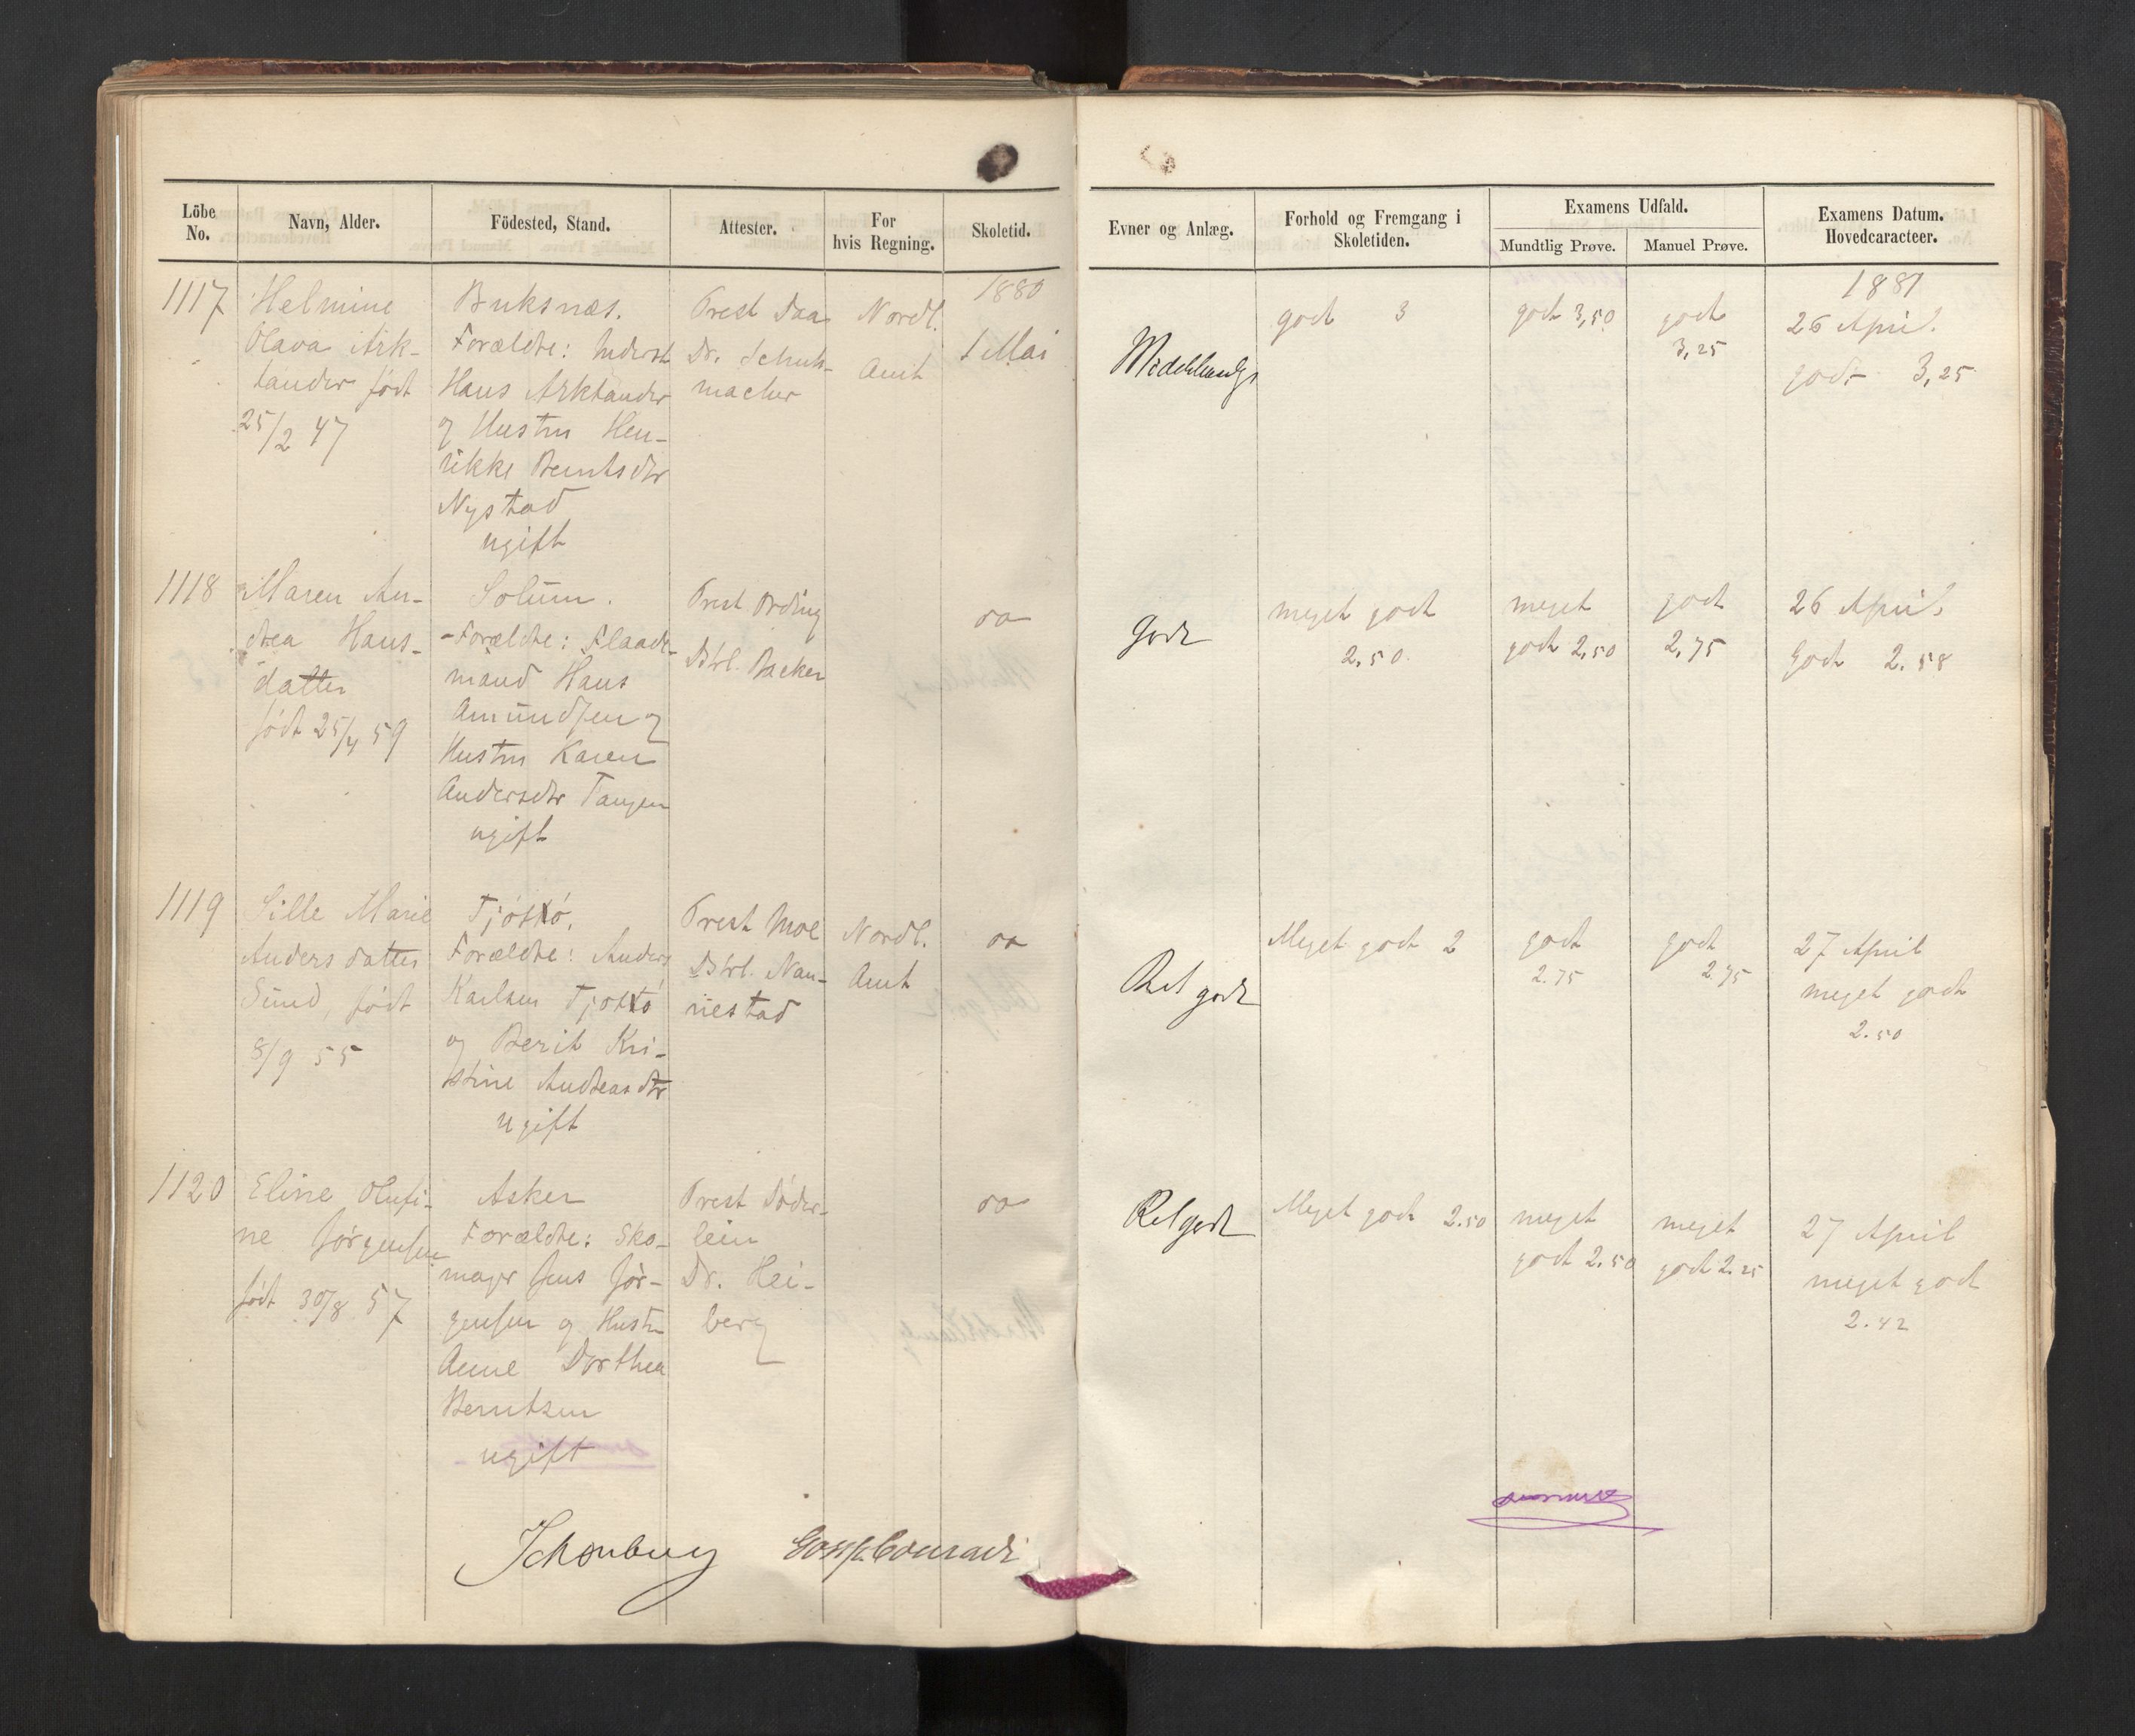 Löbe No.
Navn, Alder.
Födested, Stand.
Attester.
For hvis Regning.
Skoletid.
Evner og Anlæg.
Forhold og Fremgang i Skoletiden.
Examens Udfald.
Mundtlig Prøve.
Manuel Prøve.
Examens Datum. Hovedcaracteer.
1117
Helmine
Olava Ark-
tander født
25/2 47
Buksnæs.
Forældre: Inderst
Hans Arktander
og Hustru Hen-
rikke Berntsdtr
Nystad
ugift
Prest Daa
Dr. Schuh-
macher
Nordl.
Amt
1880
1 Mai
Middelmaadgt
godt 3
godt 3,50
godt
3,25
1881
26 April.
godt 3,25
1118
Maren An-
drea Hans-
datter
født 25/4 59
Solum.
Forældre: Flaade-
mand Hans
Amundsen og
Hustru Karen
Andersdtr Tangen
ugift
Prest Ording
Dstrl. Backer
oo
godt
meget godt
2,50.
meget
godt 2,50
godt
2,75
26 April
Godt 2.58
1119
Sille Marie
Andersdatter
Sund, født
8/9 55
Tjøttø.
Forældre: Anders
Karlsen Tjøttø
og Berit Kri-
stine Andreasdtr
ugift
Prest Moe
Dstrl. Nan-
nestad
Nordl.
Amt
oo
Ret godt
Meget godt 2
godt
2.75
godt
2.75
27 April
meget godt
2.50
1120
Eline Olufi-
ne Jørgensen
født 30/8 57
Asker
Forældre: Sko-
mager Jens Jør-
gensen og Hustru
Anne Dorthea
Berntsen
ugift
Prest Søder-
lein
Dr. Hei-
berg
oo
Ret godt
Meget godt 2.50
meget
godt 2.50
meget
godt 2.25
27 April
meget godt
2.42
Schønberg
Conradi